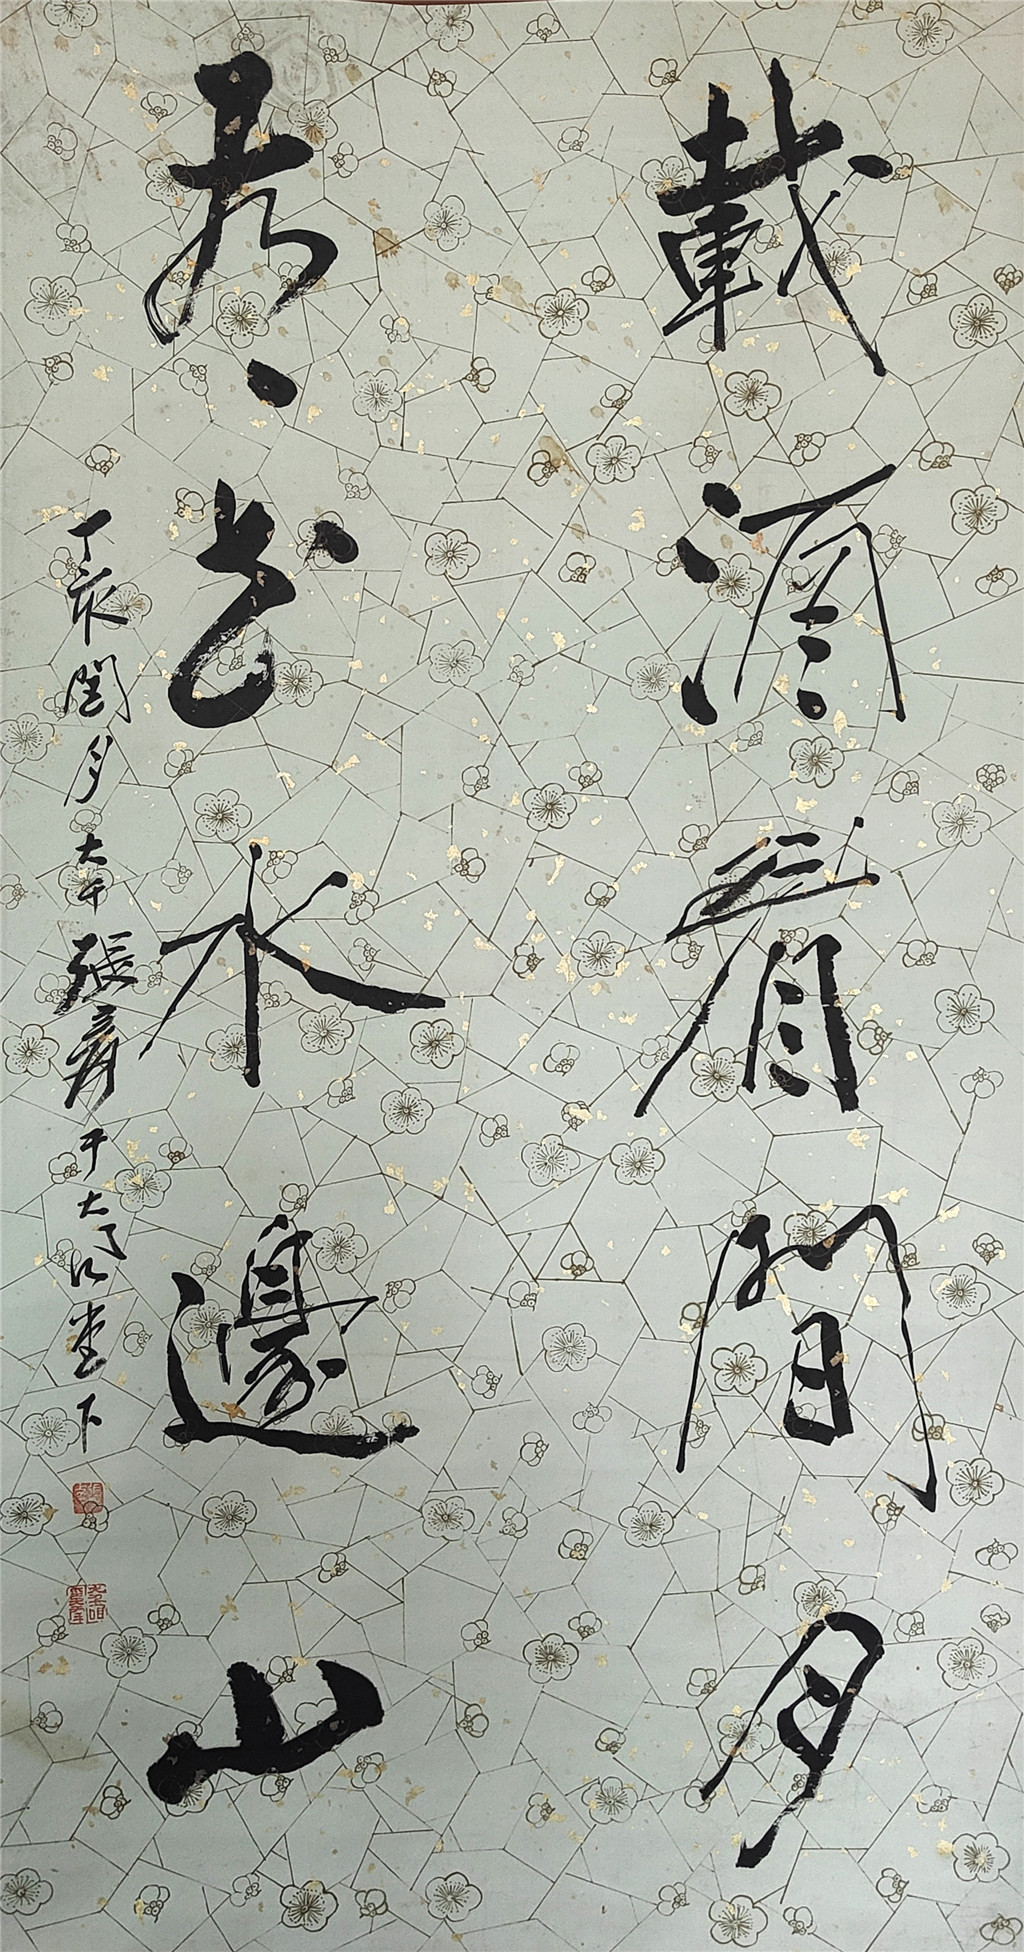 載酒看間月
水邊山
丁亥閏月大千張爰于大風堂下